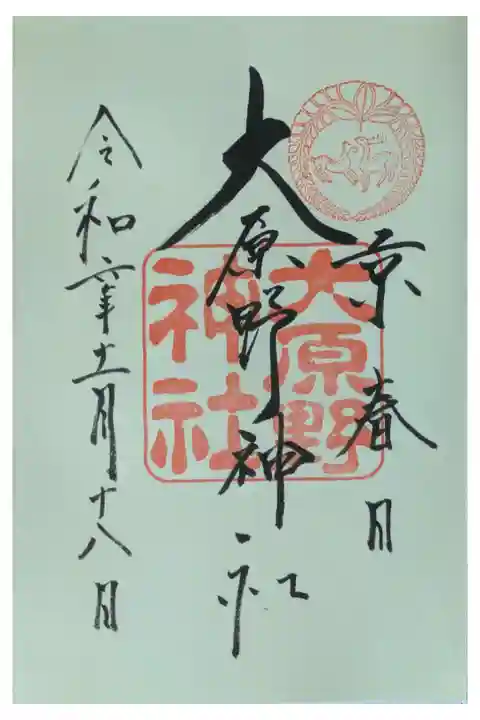 京春日
大原野神社
大原野
神社
令和六年十一月十八日